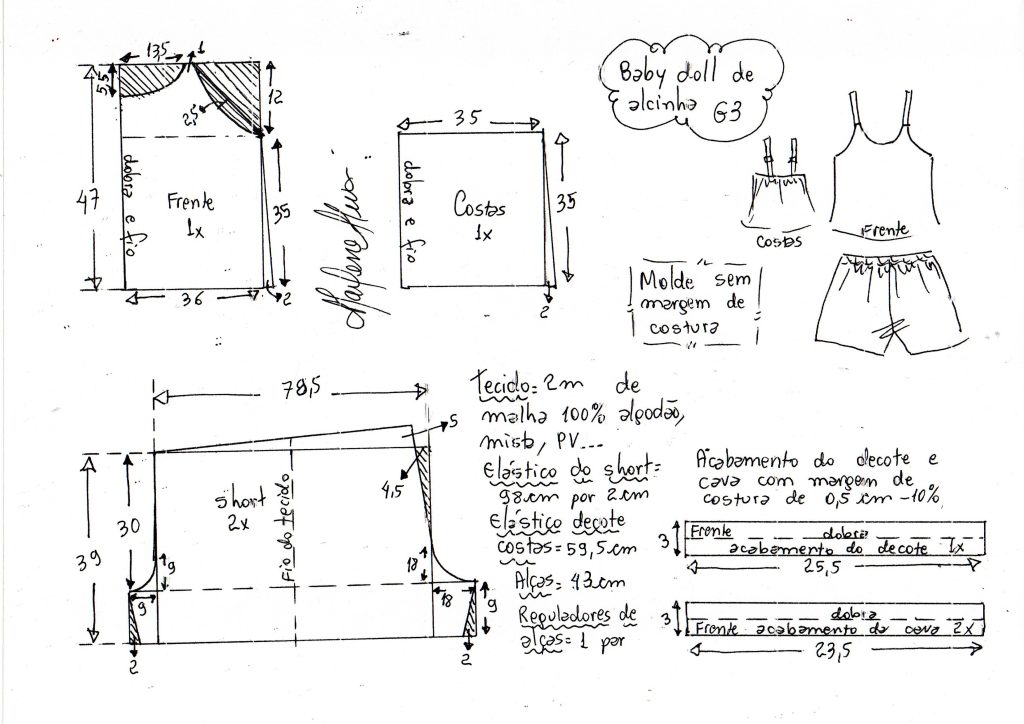 Baby doll de
alcinha G3
13,5
1
5,5
2,5
12
47
dobra e fio
Frente
1x
35
36
2
35
dobra e fio
Costas
1x
35
2
Costas
Frente
Molde sem
margem de
costura
78,5
5
4,5
39
30
short
2x
Fio do tecido
9
9
18
18
9
2
2
Tecido= 2m de
malha 100% algodão,
mista, PV...
Elástico do short=
98cm por 2cm
Elástico decote
costas= 59,5cm
Alças= 43cm
Reguladores de
alças= 1 par
Acabamento do decote e
cava com margem de
costura de 0,5cm -10%
3
Frente dobra
acabamento do decote 1x
25,5
3
dobra
Frente acabamento da cava 2x
23,5